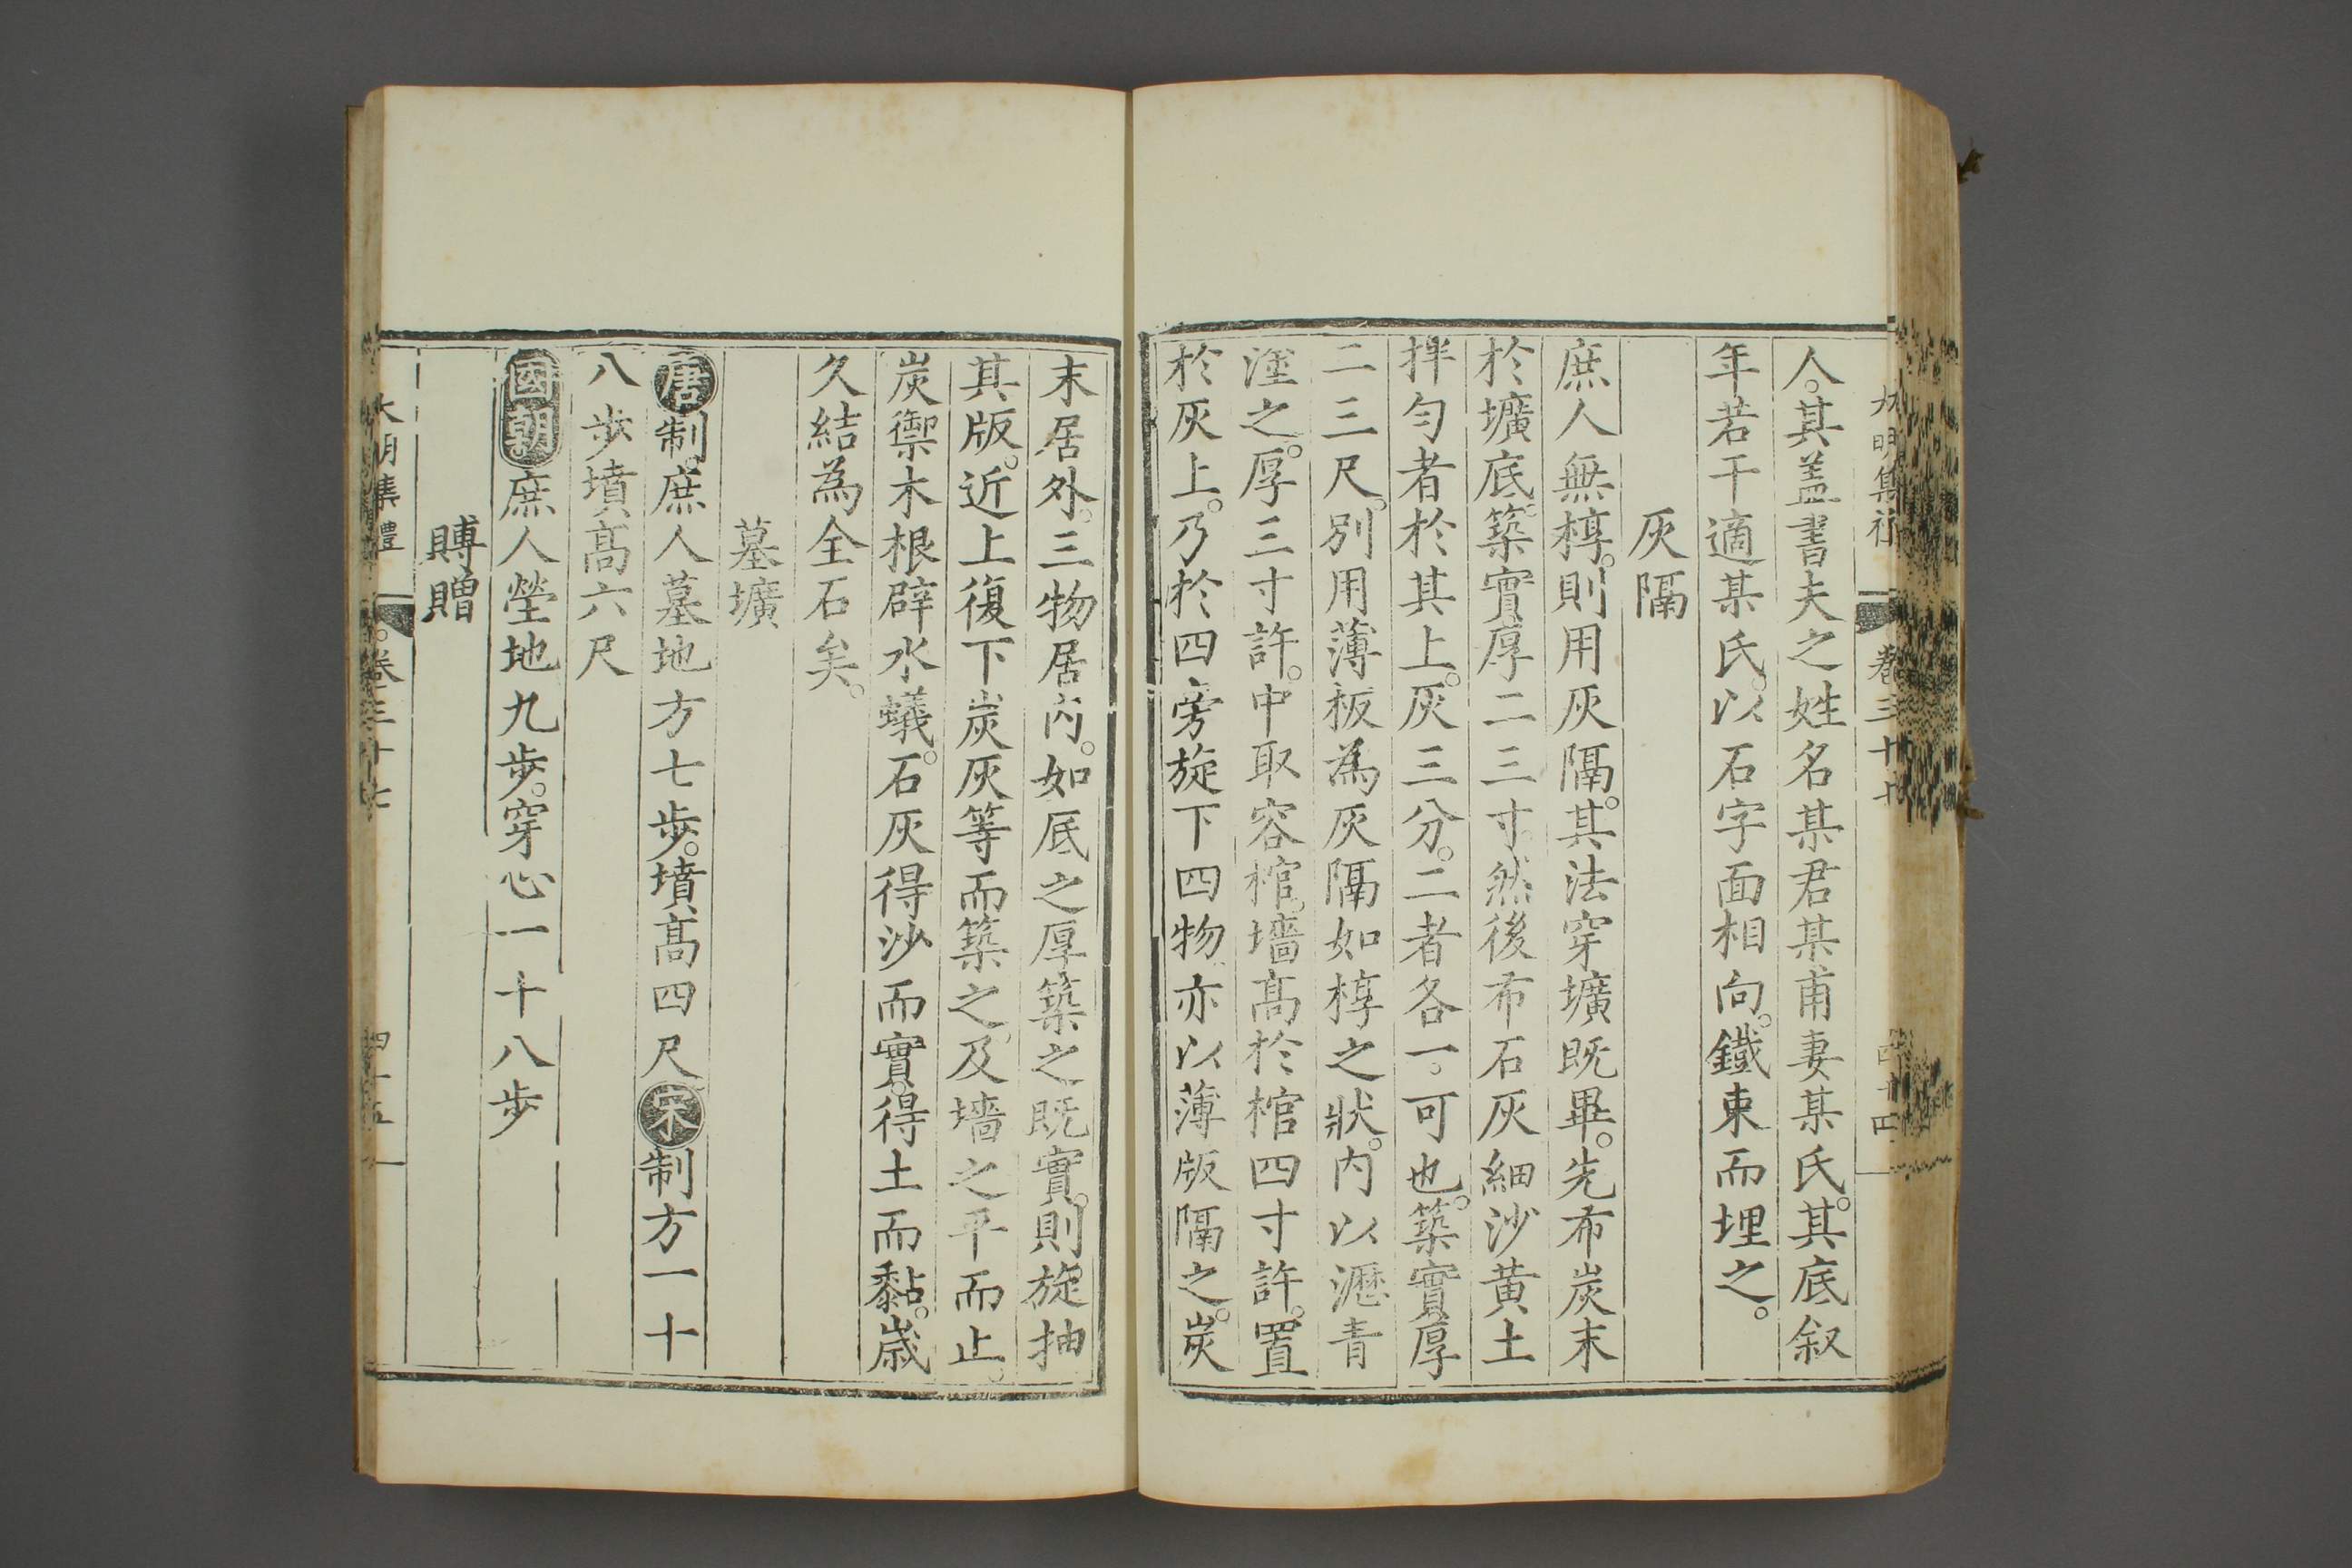 大明集礼 卷三十七 四十四
人。其盖書夫之姓名某君某甫妻某氏。其底叙
年若干適某氏。以石字面相向。鐵束而埋之。
灰隔
庶人無椁。則用灰隔。其法穿壙既畢。先布炭末
於壙底。築實厚二三寸。然後布石灰細沙黄土
拌勻者於其上。灰三分。二者各一。可也。築實厚
二三尺。別用薄板為灰隔如椁之狀。内以瀝青
塗之。厚三寸許。中取容棺。墻髙於棺四寸許。置
於灰上。乃於四旁旋下四物。亦以薄版隔之。炭
末居外。三物居内。如底之厚築之既實。則旋抽
其版。近上復下炭灰等而築之。及墻之平而止。
炭禦木根辟水蟻。石灰得沙而實。得土而黏。歲
久結為全石矣。
墓壙
唐制。庶人墓地方七步。墳髙四尺宋制方一十
八步墳髙六尺
國朝。庶人塋地九步。穿心一十八步
賻贈
大明集禮 卷三十七 四十五